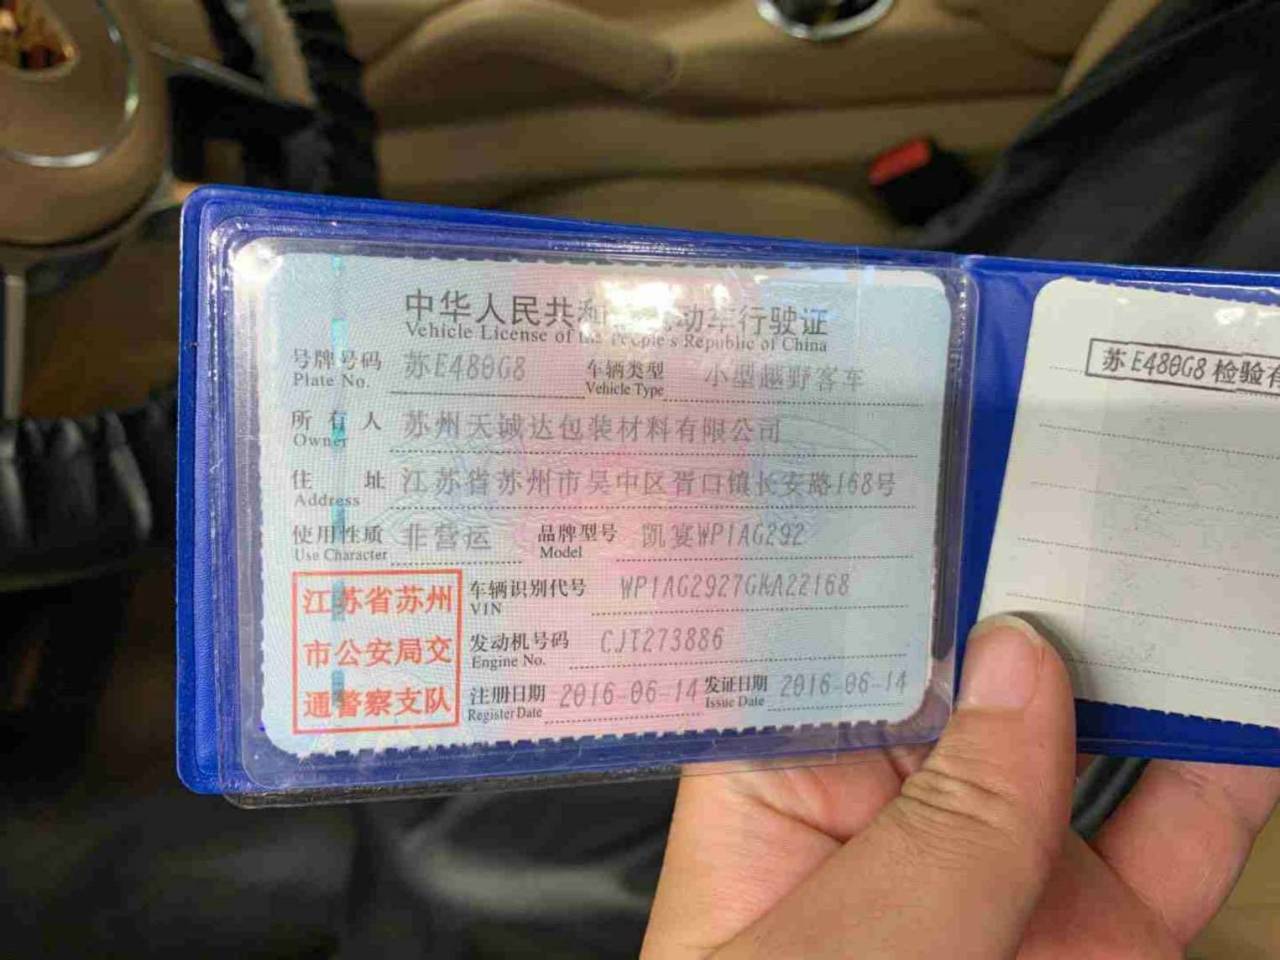 中华人民共和国机动车行驶证
Vehicle License of the People's Republic of China
号牌号码 苏E480G8 车辆类型 小型越野客车
Plate No. Vehicle Type
所有人 苏州天诚达包装材料有限公司
Owner
住址 江苏省苏州市吴中区胥口镇长安路168号
Address
使用性质 非营运 品牌型号 凯宴WP1AG292
Use Character Model
江苏省苏州
市公安局交
通警察支队
车辆识别代号 WP1AG2927GKA22168
VIN
发动机号码 CJT273886
Engine No.
注册日期 2016-06-14 发证日期 2016-06-14
Register Date Issue Date
苏E480G8 检验有